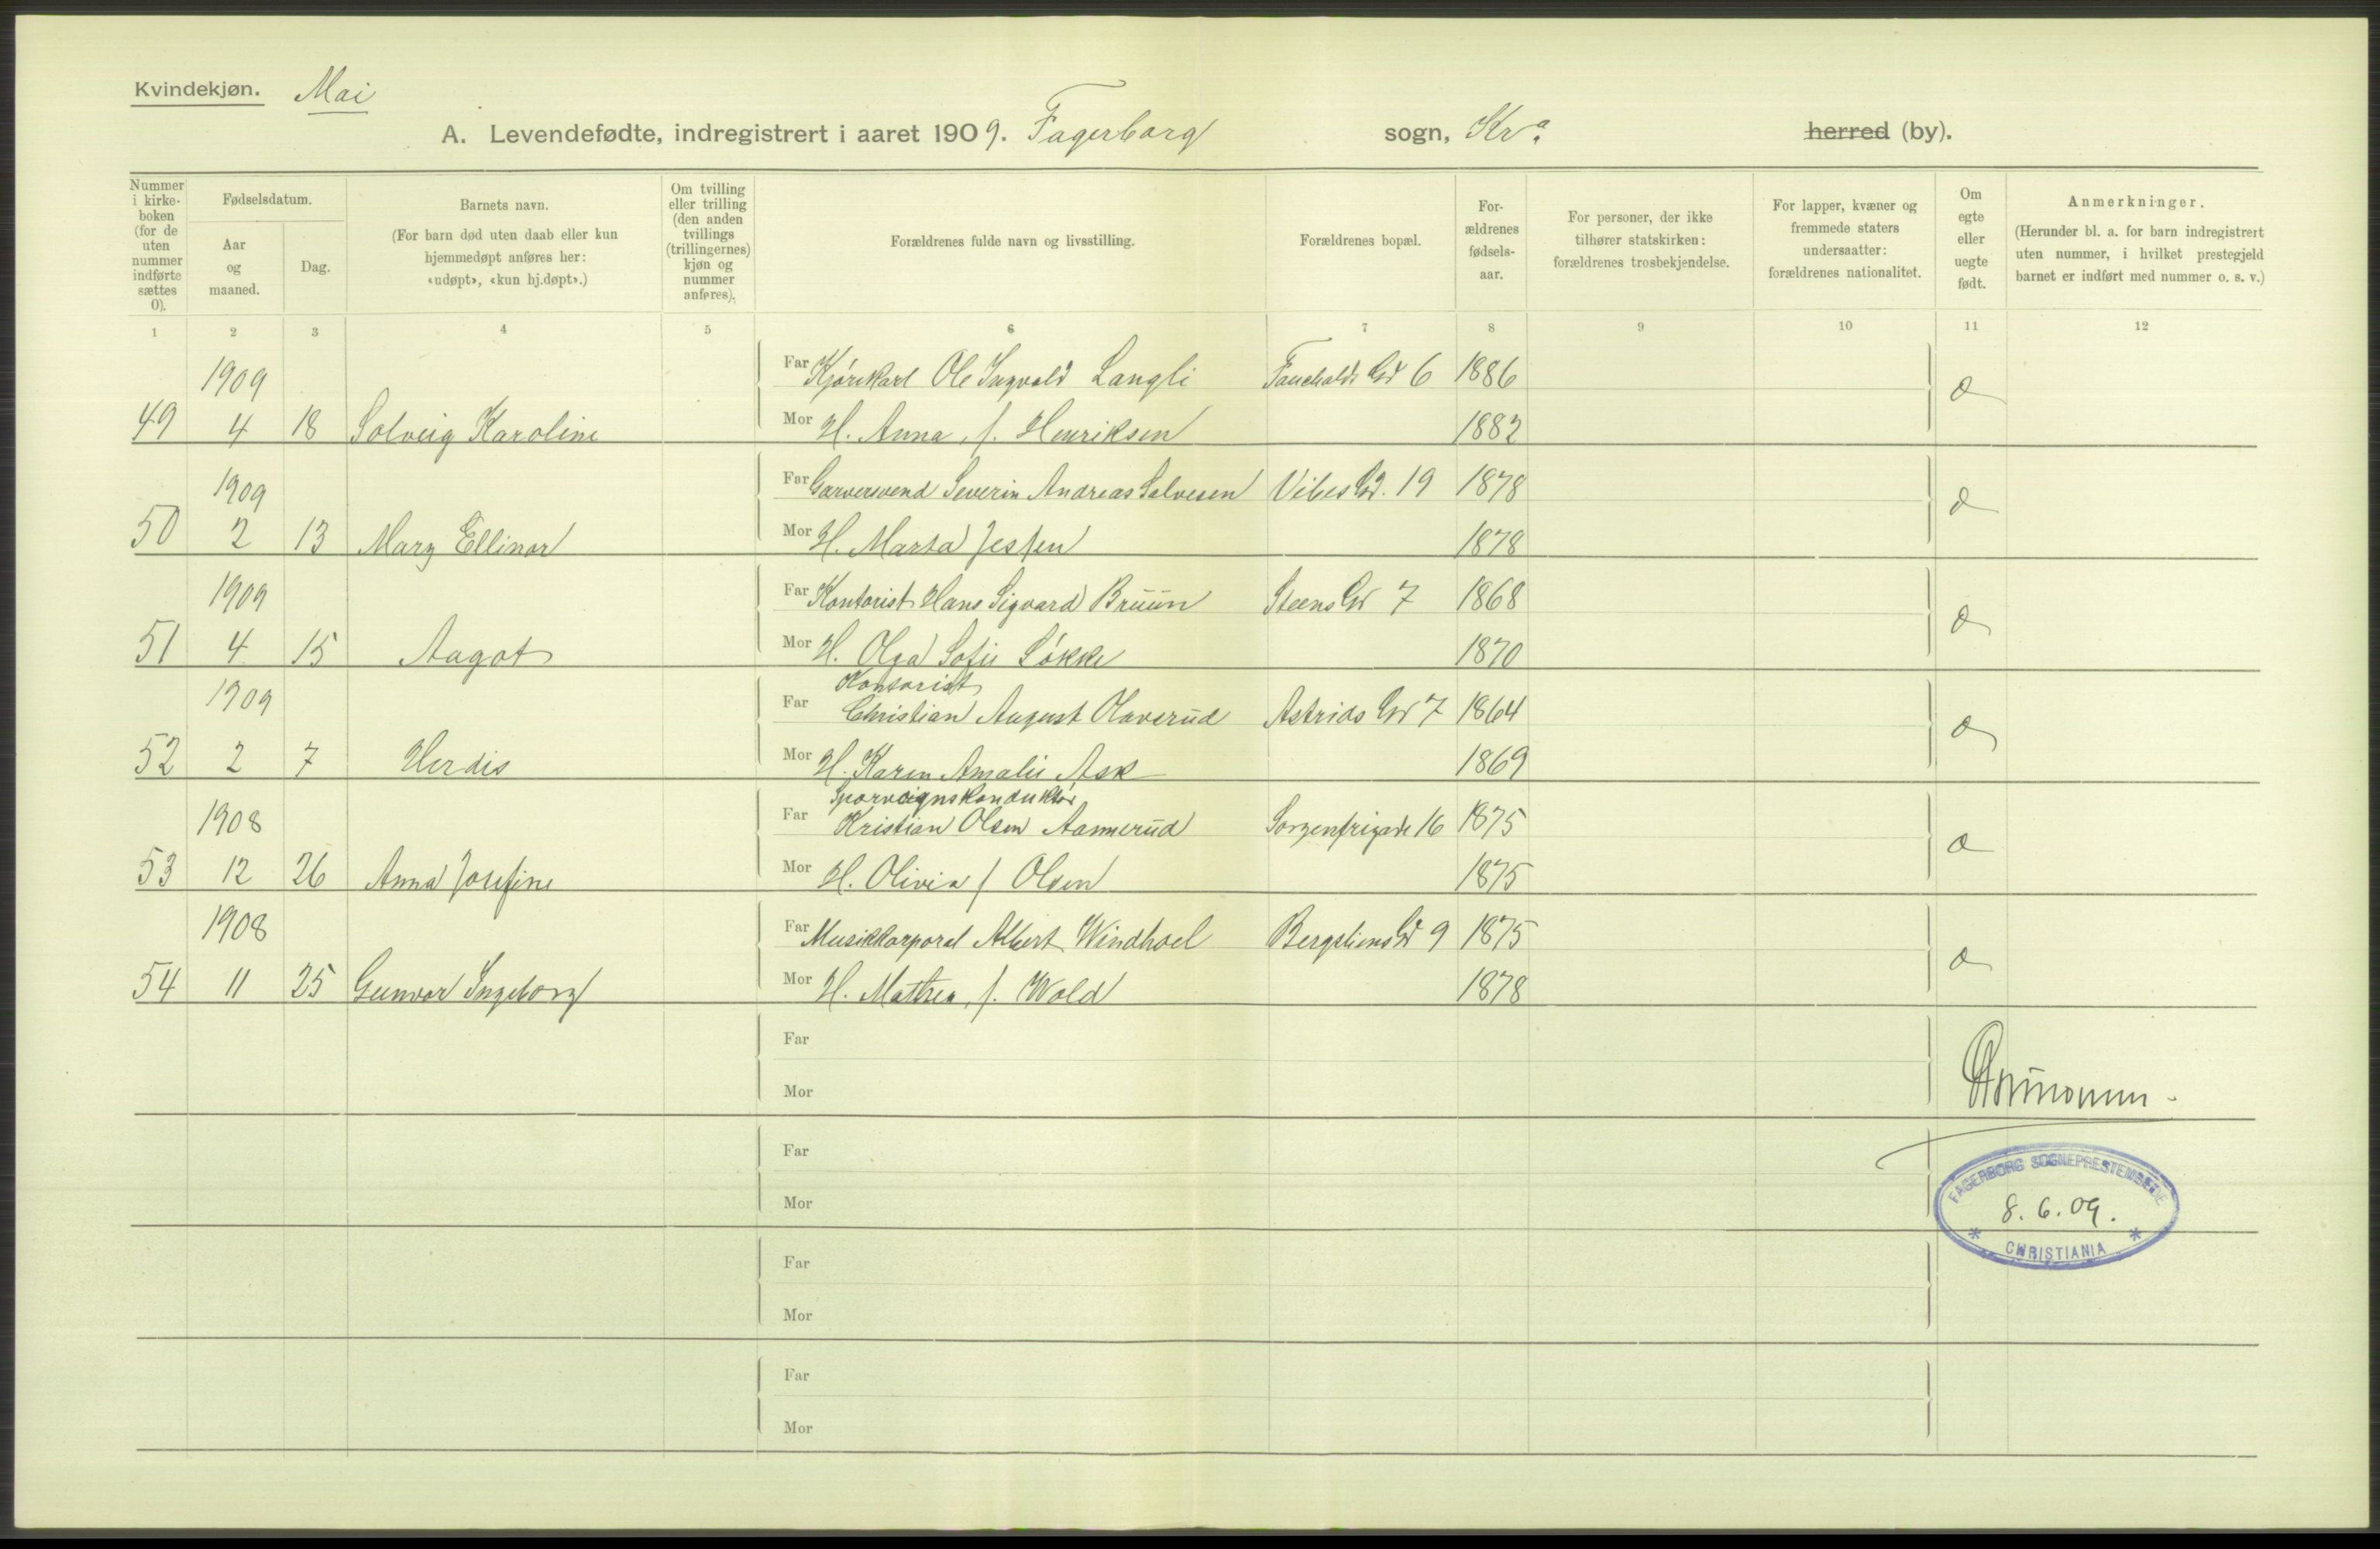 Kvindekjøn. Mai
A. Levendefødte, indregistrert i aaret 1909. Fagerborg sogn, Kra. herred (by).
Nummer i kirke-boken (for de uten nummer indførte sættes 0).
Fødselsdatum.
Aar og maaned.
Dag.
Barnets navn.
(For barn død uten daab eller kun hjemmedøpt anføres her: «udøpt», «kun hj.døpt».)
Om tvilling eller trilling (den anden tvillings (trillingernes) kjøn og nummer anføres).
Forældrenes fulde navn og livsstilling.
Forældrenes bopæl.
For-ældrenes fødsels-aar.
For personer, der ikke tilhører statskirken: forældrenes trosbekjendelse.
For lapper, kvæner og fremmede staters undersaatter: forældrenes nationalitet.
Om egte eller uegte født.
Anmerkninger.
(Herunder bl. a. for barn indregistrert uten nummer, i hvilket prestegjeld barnet er indført med nummer o. s. v.)
1 2 3 4 5 6 7 8 9 10 11 12
1909 Far Kjørekarl Ole Ingvald Langli Fauchalds Gd 6 1886
49 4 18 Solveig Karoline Mor H. Anna f. Henriksen 1882
1909 Far Garversvend Severin Andreas Salvesen Vibes Gd. 19 1878
50 2 13 Mary Ellinor Mor H. Marta Jessen 1878
1909 Far Kontorist Hans Sigvard Bruun Steens Gd 7 1868
51 4 15 Aagot Mor H. Olga Sofie Løkke 1870
Kontorist
1909 Far Christian August Haverud Astrids Gd 7 1864
52 2 7 Herdis Mor H. Karen Amalie Ask 1869
Sporveignskonduktør
1908 Far Kristian Olsen Aamerud Sorgenfrigade 16 1875
53 12 26 Anna Josefine Mor H. Olivia f Olsen 1875
1908 Far Musikkorporal Albert Windhoel Bergsliens Gd 9 1875
54 11 25 Gunvor Ingeborg Mor H. Mathea f. Wold 1878
Far
Mor
Far
Mor
FAGERBORG SOGNEPRESTEMBEDE
8.6.09.
CHRISTIANIA
Far
Mor
Far
Mor